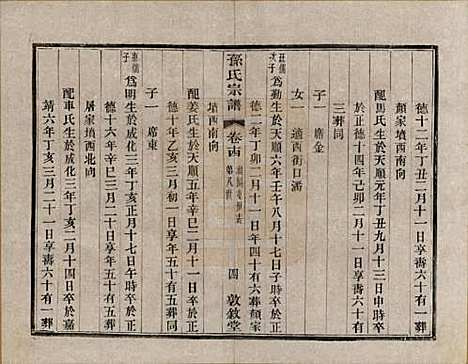 德十二年丁丑二月十一日享壽六十有一葬
顏家墳西南向
配馬氏生於天順元年丁丑九月十三日申時卒
於正德十四年己卯二月十一日享壽六十有
三葬同
子一 席金
女一 適西街口潘
次子 爲勤生於天順六年壬午八月十七日子時卒於正
德二年丁卯二月十一日年四十有六葬顏家
孫氏宗譜
卷十四
第八世
四
敦敘堂
墳西南向
配姜氏生於天順五年辛巳二月十一日卒於正
德十年乙亥三月初一日享年五十有五葬同
子一 席東
子 爲明生於成化三年丁亥正月十七日午時卒於正
德十六年辛巳三月二十日享年五十有五葬
屠家墳西北向
配車氏生於成化三年丁亥二月十四日卒於嘉
靖六年丁亥三月二十一日享壽六十有一葬